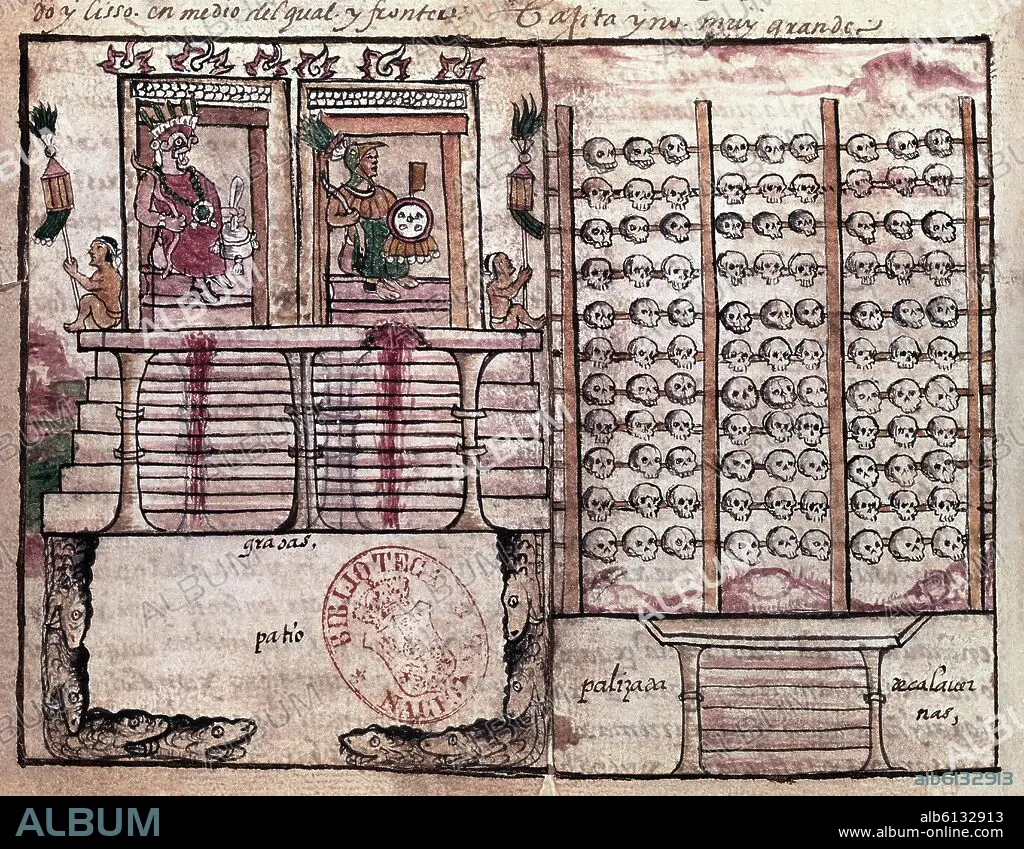 do y lisso. en medio del qual. y frontero
Casita y no. muy grande.
gradas,
patio
BIBLIOTECA
NAL
palizada
de calaver
nas,
alb6132913
ALBUM
alb6132913
www.album-online.com